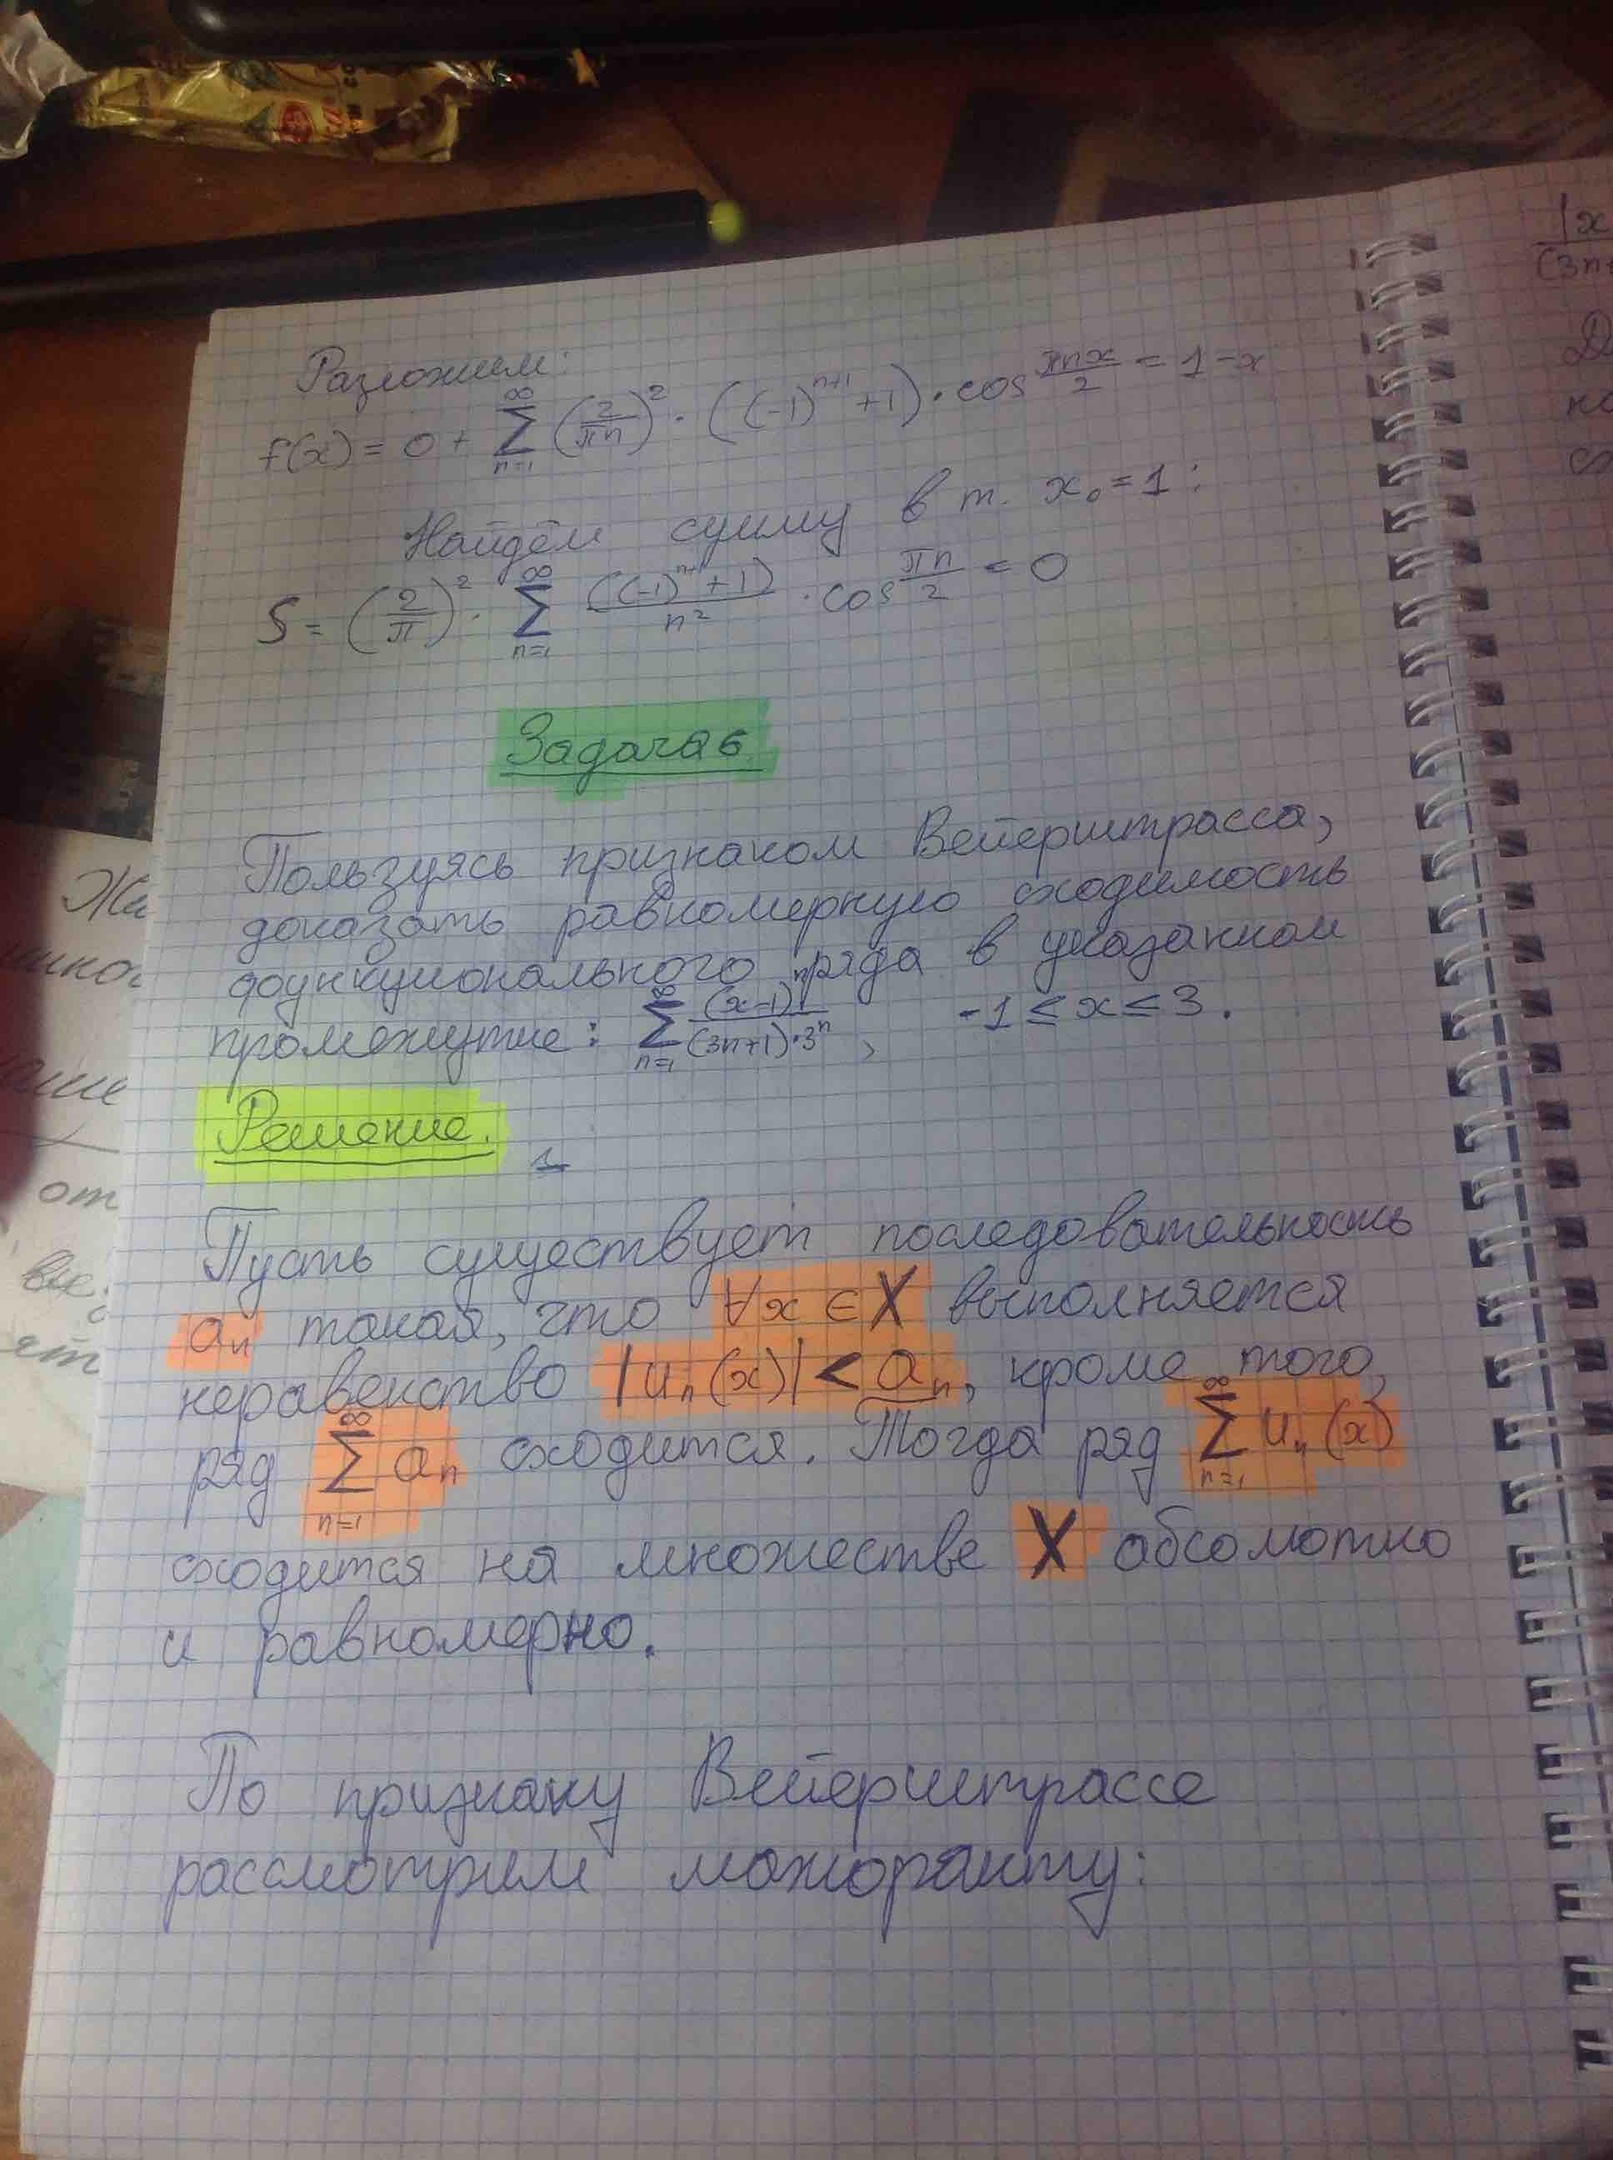 Разложим:
f(x) = 0 + ∑_{n=1}^{∞} (2/(πn))² · ((-1)^{n+1} + 1) · cos πnx/2 = 1-x
Найдём сумму в т. x₀ = 1:
S = (2/π)² · ∑_{n=1}^{∞} ((-1)^{n+1} + 1)/n² · cos πn/2 = 0
Задача 6
Пользуясь признаком Вейерштрасса,
доказать равномерную сходимость
функционального ряда в указанном
промежутке: ∑_{n=1}^{∞} (x-1)^n/((3n+1)·3^n), -1 ≤ x ≤ 3.
Решение.
Пусть существует последовательность
aₙ такая, что ∀x ∈ X выполняется
неравенство |uₙ(x)| < aₙ, кроме того,
ряд ∑_{n=1}^{∞} aₙ сходится. Тогда ряд ∑_{n=1}^{∞} uₙ(x)
сходится на множестве X абсолютно
и равномерно.
По признаку Вейерштрассе
рассмотрим мажоранту:
|x
(3n+
от